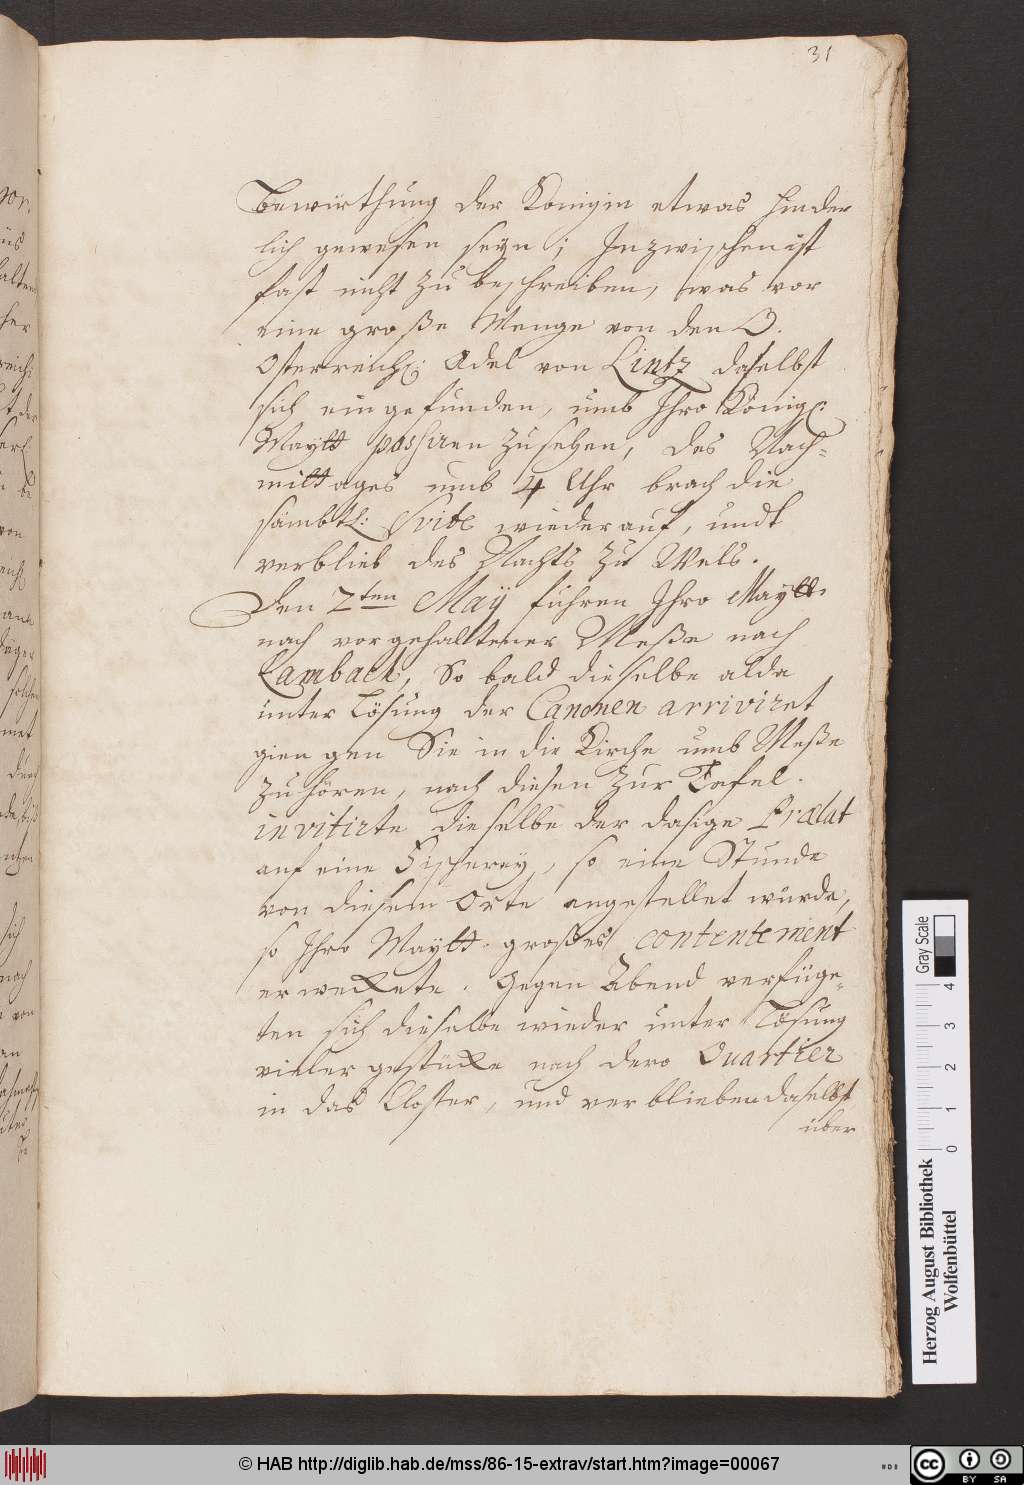 31
Bewürthung der Königin etwas hinder
lich gewesen seyn; Inzwischen ist
fast nicht zu beschreiben, was vor
eine große Menge von den O.
Osterreichl: Adel von Lintz daselbst
sich eingefunden, umb Ihro Königl:
Maytt passiren zusehen, des Nach-
mittages umb 4 Uhr brach die
sämbtl: Svite wieder auf, undt
verblieb des Nachts zu Wels.
Den 2ten May fuhren Ihro Maytt.
nach vorgehaltener Meße nach
Lambach, So bald dieselbe alda
unter Lösung der Canonen arriviret
giengen Sie in die Kirche umb Meße
zu hören, nach diesen zur Tafel.
invitirte dieselbe der dasige Prælat
auf eine Fischerey, so eine Stunde
von diesem Orte angestellet wurde,
so Ihro Maytt. großes contentement
erweckete. Gegen Abend verfüge-
ten sich dieselbe wieder unter Lösung
vieler gestücke nach dero Quartier
in das Closter, und verblieben daselbst
über
Gray Scale
0 1 2 3 4
Herzog August Bibliothek
Wolfenbüttel
© HAB http://diglib.hab.de/mss/86-15-extrav/start.htm?image=00067
cc BY SA